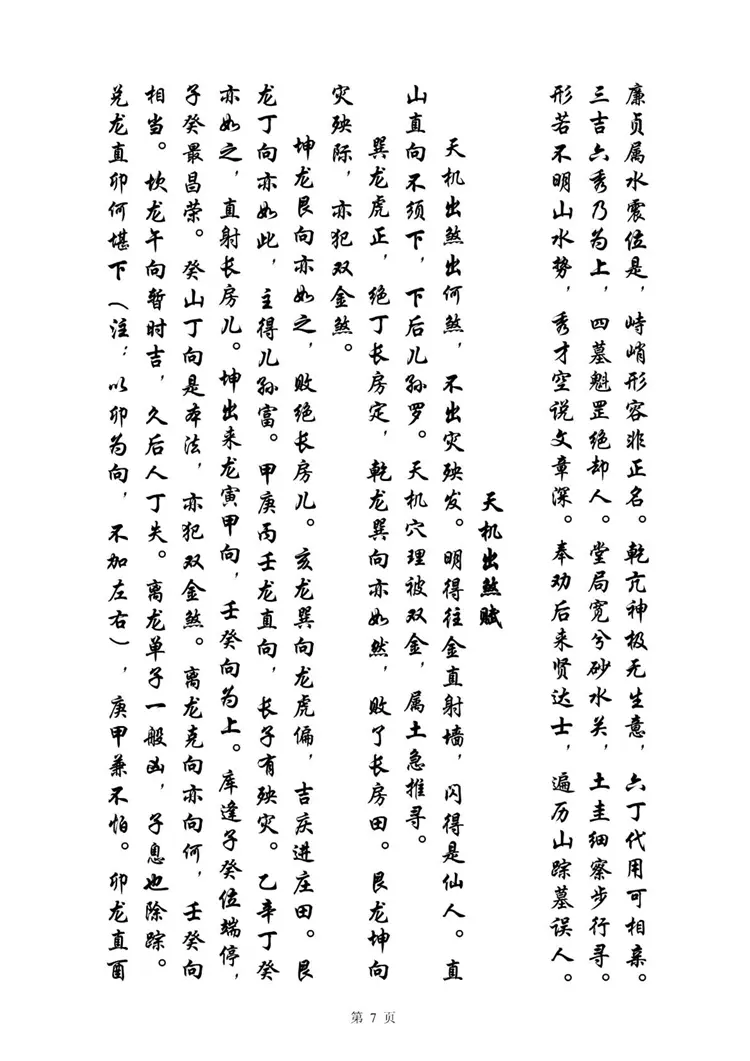 廉贞属水震位是，峙峭形容非正名。乾亢神极无生意，六丁代用可相亲。
三吉六秀乃为上，四墓魁罡绝却人。堂局宽兮砂水关，土圭细察步行寻。
形若不明山水势，秀才空说文章深。奉劝后来贤达士，遍历山踪墓误人。
天机出煞赋
天机出煞出何煞，不出灾殃发。明得往金直射墙，闪得是仙人。直
山直向不须下，下后儿孙罗。天机穴理被双金，属土急推寻。
巽龙虎正，绝丁长房定，乾龙巽向亦如然，败了长房田。艮龙坤向
灾殃际，亦犯双金煞。
坤龙艮向亦如之，败绝长房儿。亥龙巽向龙虎偏，吉庆进庄田。艮
龙丁向亦如此，主得儿孙富。甲庚丙壬龙直向，长子有殃灾。乙辛丁癸
亦如之，直射长房儿。坤出来龙寅甲向，壬癸向为上。库逢子癸位端停，
子癸最昌荣。癸山丁向是本法，亦犯双金煞。离龙克向亦向何，壬癸向
相当。坎龙午向暂时吉，久后人丁失。离龙单子一般凶，子息也除踪。
兑龙直卯何堪下（注：以卯为向，不加左右），庚甲兼不怕。卯龙直酉
第 7 页